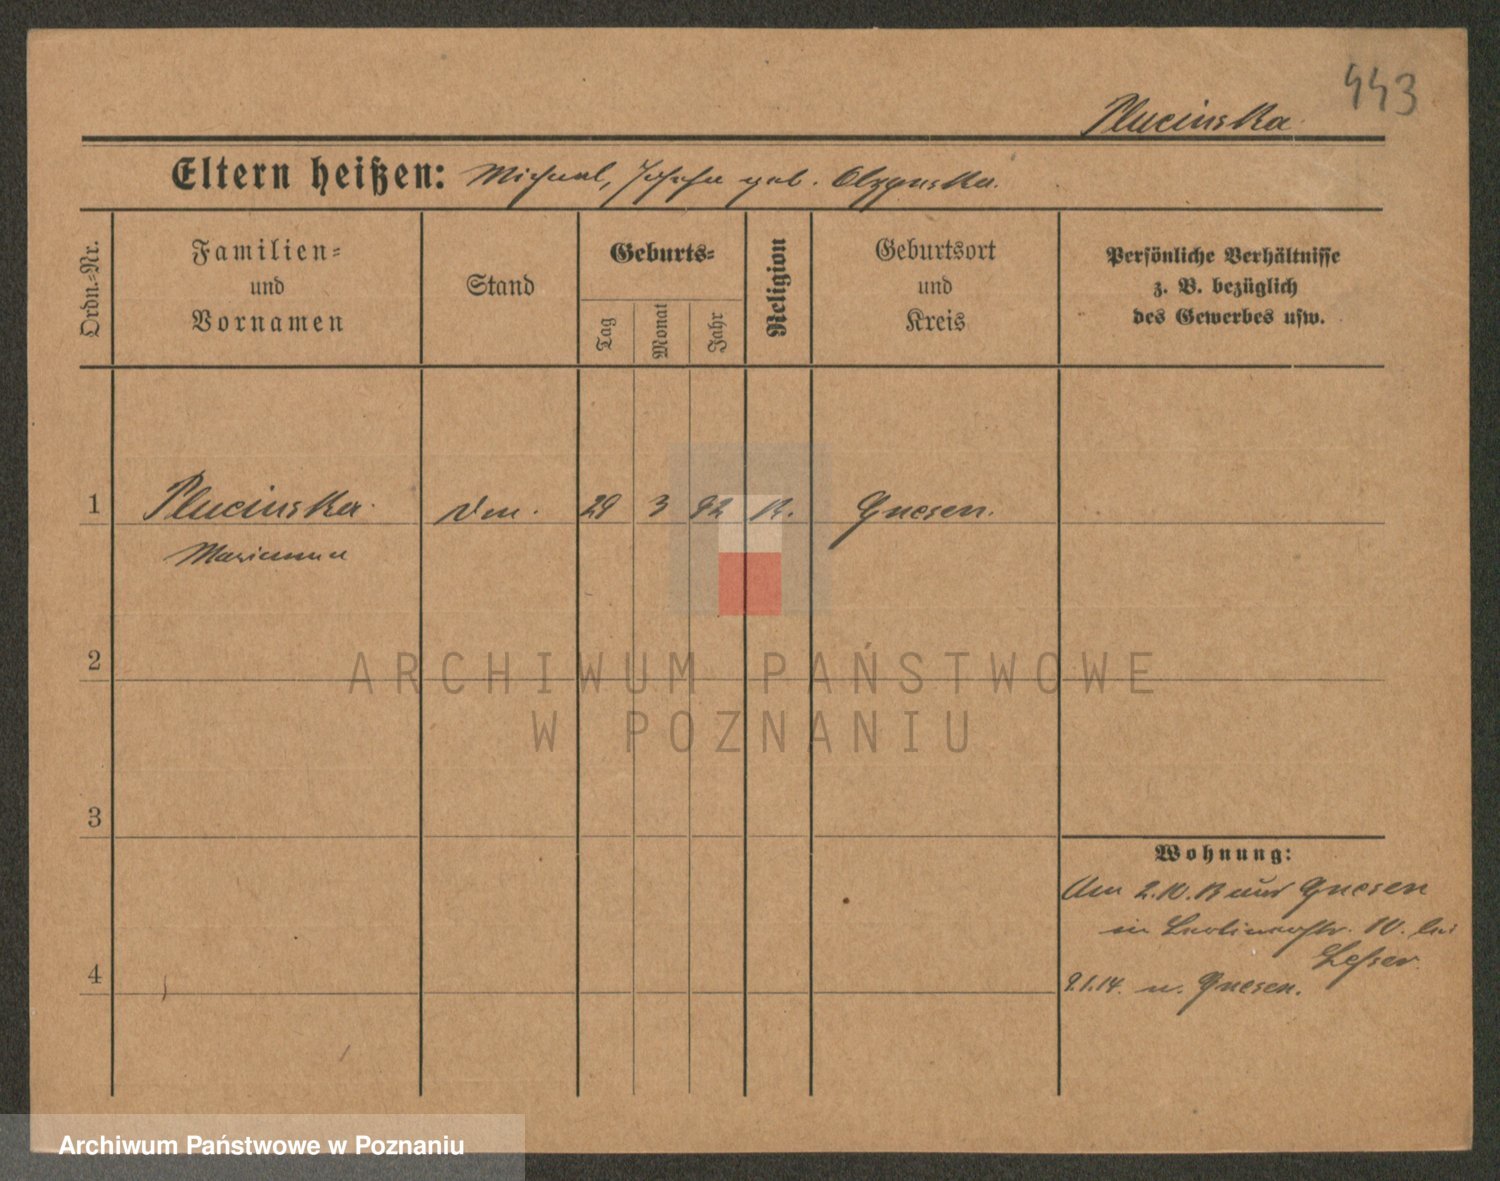 443
Plucinska
Eltern heißen: Michael, Josefa geb.
Ordn.-Nr.
Familien-
und
Vornamen
Stand
Geburts-
Tag
Monat
Jahr
Religion
Geburtsort
und
Kreis
Persönliche Verhältnisse
z. B. bezüglich
des Gewerbes usw.
1 Plucinska 29 3 92 K. Gnesen.
Marianna
2
ARCHIWUM PAŃSTWOWE
W POZNANIU
3
Wohnung:
Am 2.10.13 aus Gnesen
in Berlinerstr. 10. bei
Lesser
4
9.1.14. n. Gnesen.
Archiwum Państwowe w Poznaniu